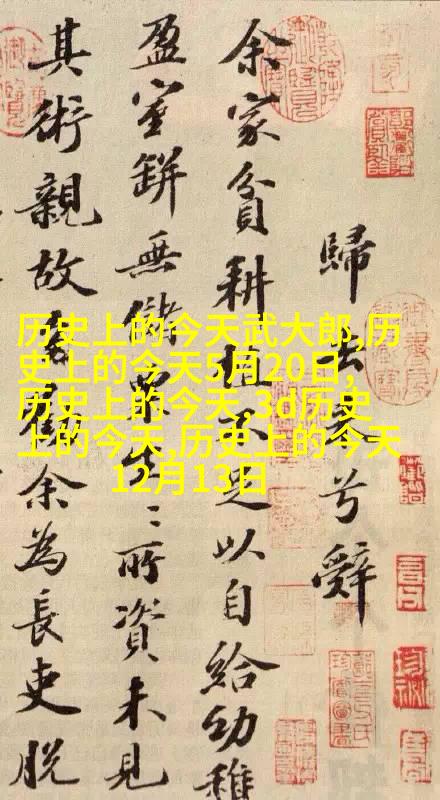 歸去来兮辭
余家貧耕植不足以自給幼稚
盈室缾無儲粟生〻所資未見
其術親故多勸余為長吏脱
历史上的今天武大郎,历
史上的今天5月20日,
历史上的今天,3d历史
上的今天,历史上的今天
12月13日